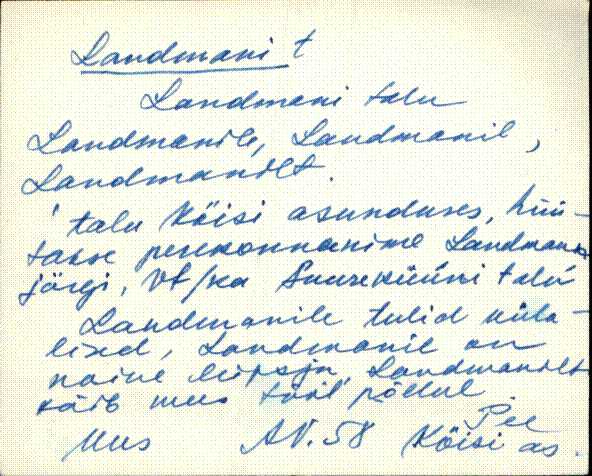 Landmani t
Landmani talu
Landmanile, Landmanil,
Landmanilt.
' talu Köisi asunduses, hüü-
takse perekonnanime Landmann
järgi, Vt/ka Suureküüni talu
Landmanile tulid küla-
lised, Landmanil on
naine lüpsja, Landmanilt
käib mees tööl põllul.
Pee
Uus AV. 58 Köisi as.